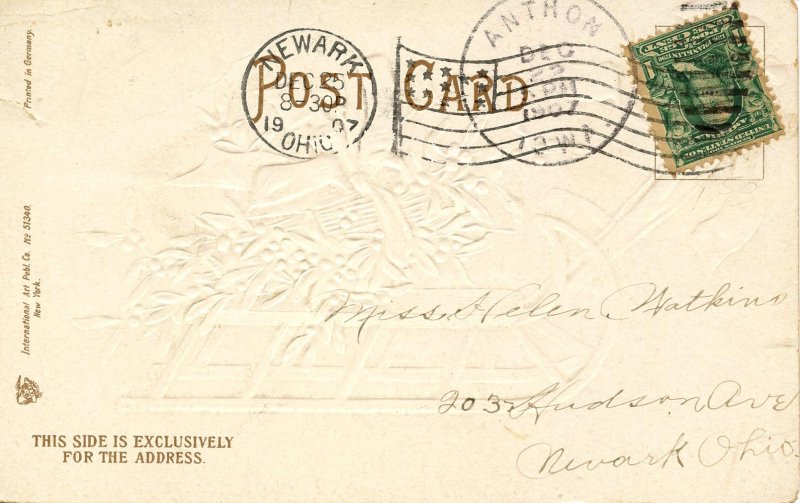 POST CARD
NEWARK
DEC 25
8-30P
1907
OHIO
ANTHON
DEC
1907
IOWA
Printed in Germany.
International Art Publ. Co. No 51340.
New York.
Miss Helen Watkins
203 Hudson Ave
Newark Ohio.
THIS SIDE IS EXCLUSIVELY
FOR THE ADDRESS.